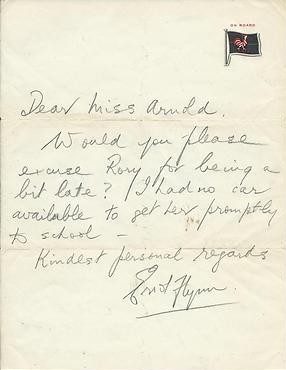 ON BOARD
Dear Miss Arnold.
Would you please
excuse Rory for being a
bit late? I had no car
available to get her promptly
to school -
Kindest personal regards
Errol Flynn